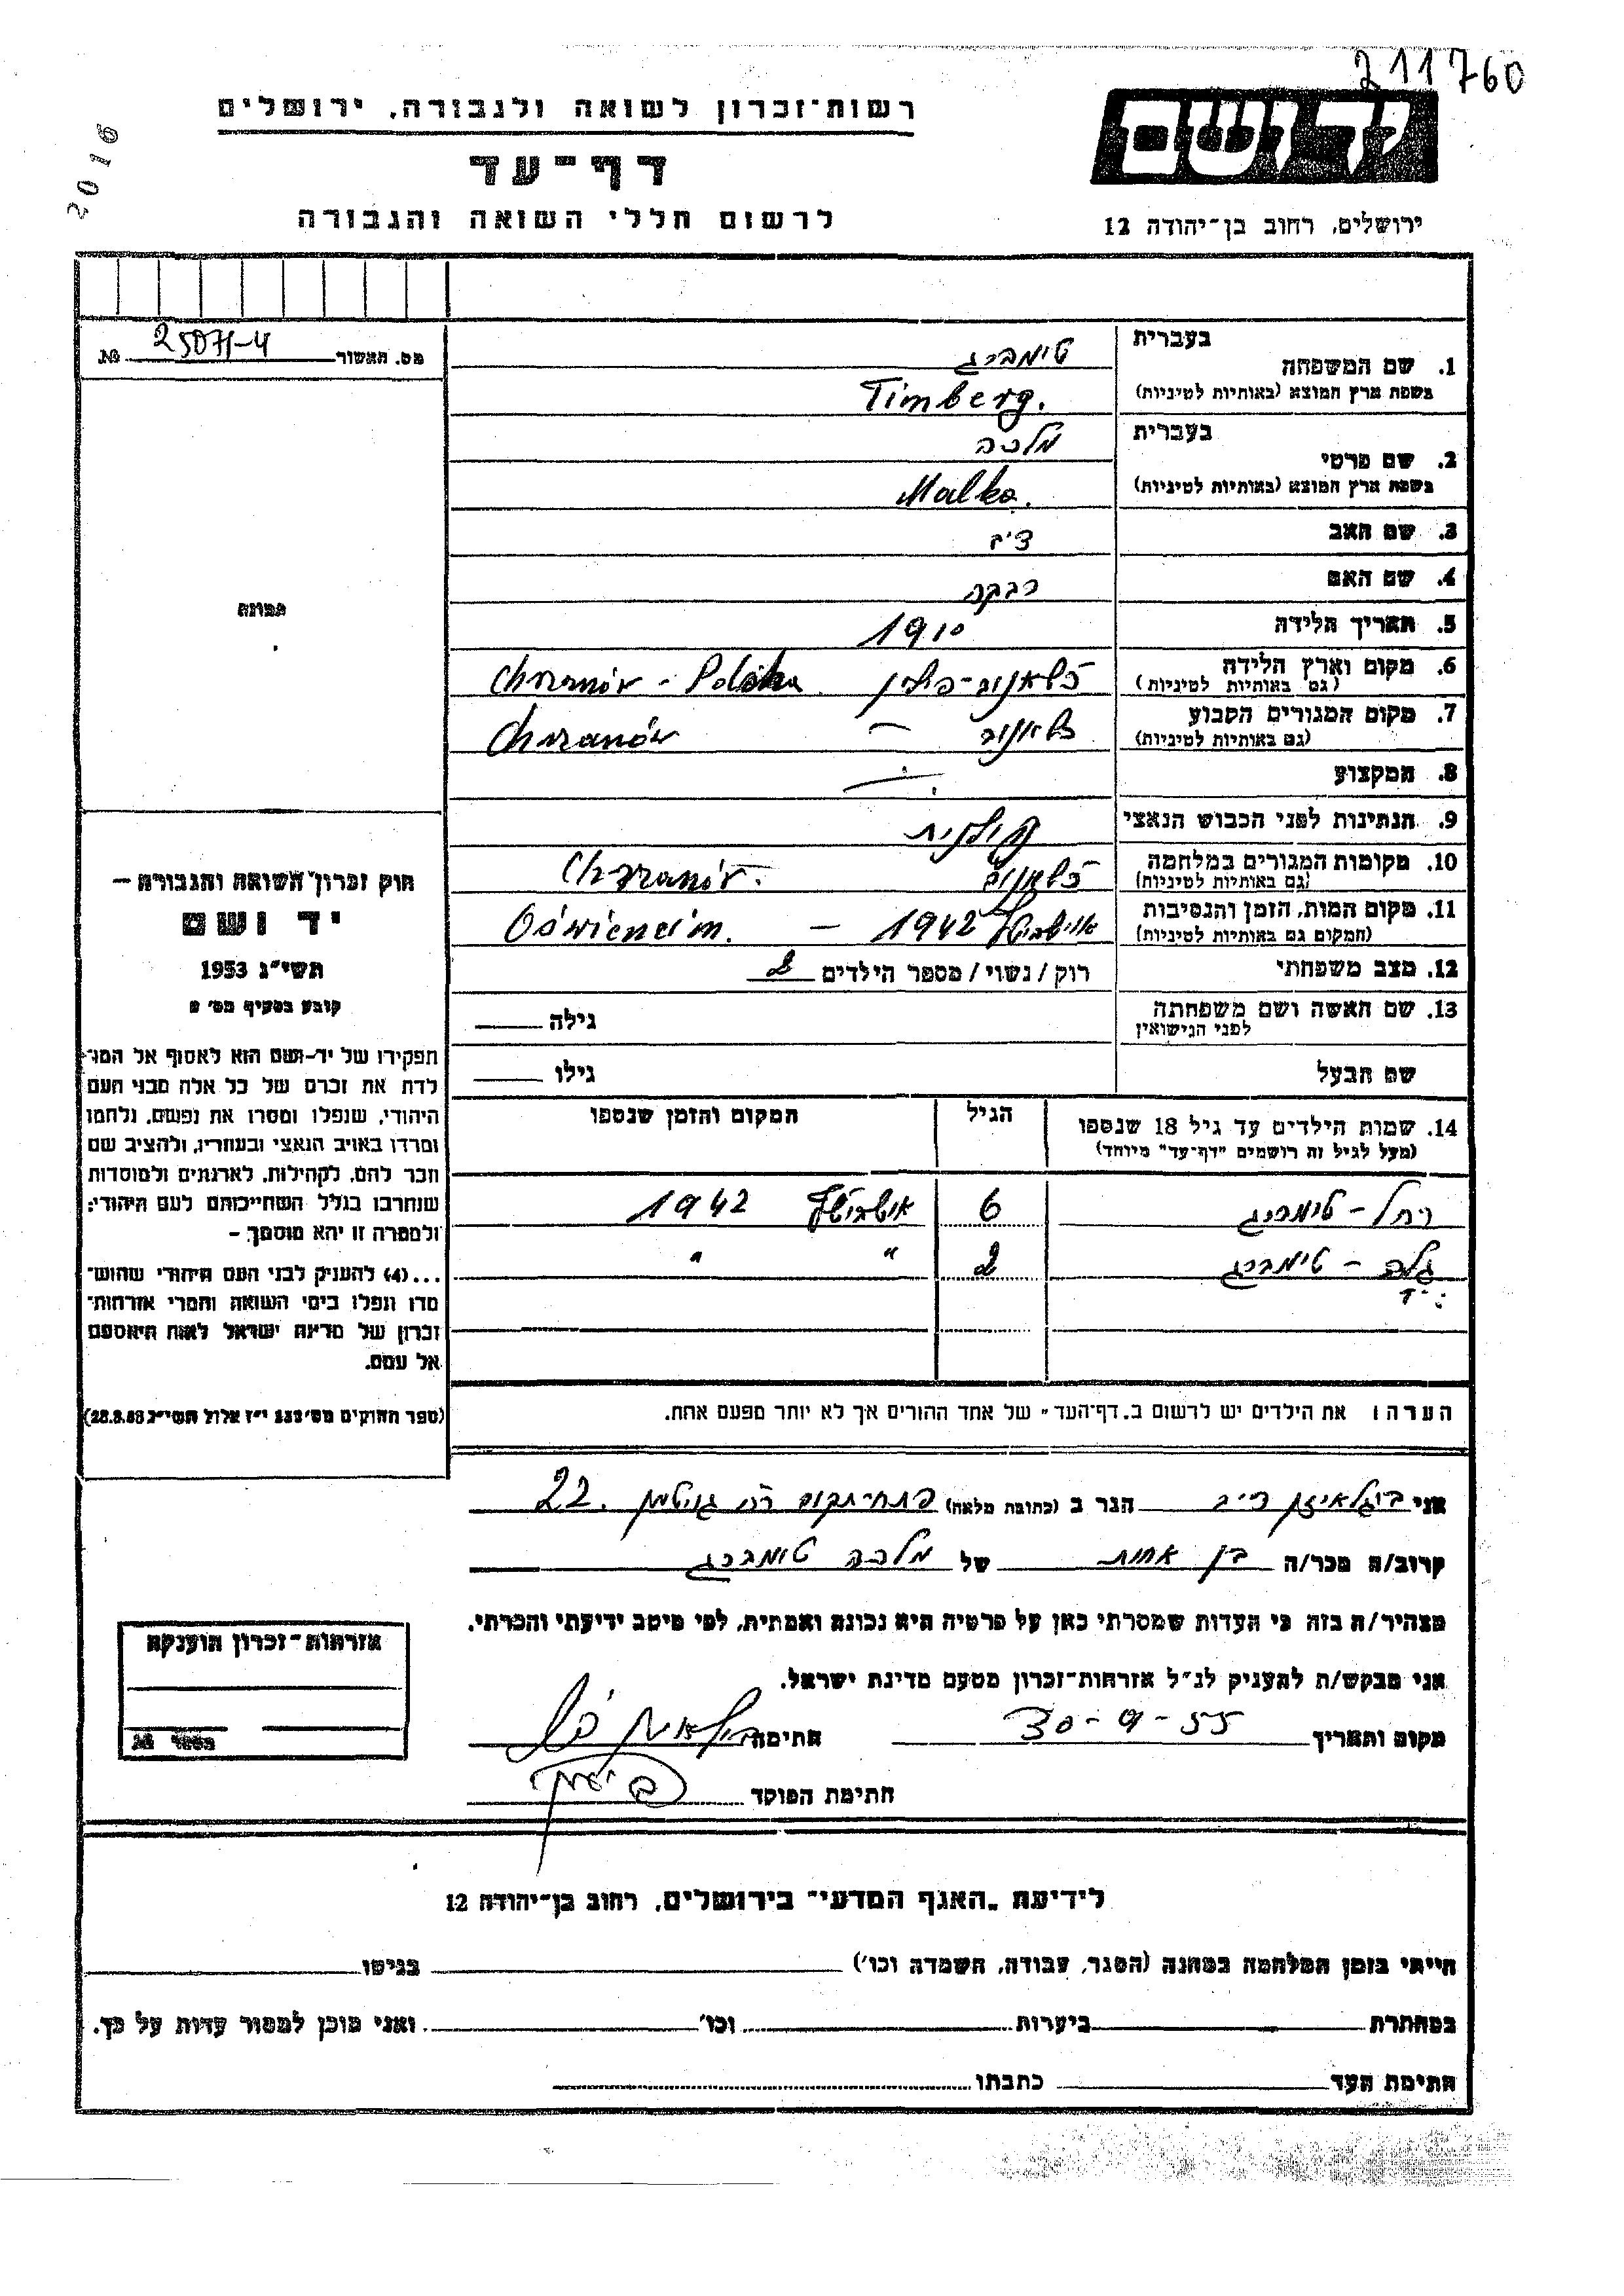 211760
2016
רשות-זכרון לשואה ולגבורה, ירושלים
דף-עד
לרשום חללי השואה והגבורה
יד ושם
ירושלים, רחוב בן-יהודה 12
מס. האשור 25071-4 №
תמונה
בעברית
1. שם המשפחה טימברג
בשפת ארץ המוצא (באותיות לטיניות) Timberg.
בעברית
2. שם פרטי מלכה
בשפת ארץ המוצא (באותיות לטיניות) Malka.
3. שם האב
4. שם האם רבקה
5. תאריך הלידה 1910
6. מקום וארץ הלידה
(גם באותיות לטיניות) Chrzanów - Polska
7. מקום המגורים הקבוע
(גם באותיות לטיניות) Chrzanów
8. המקצוע
9. הנתינות לפני הכבוש הנאצי פולנית
10. מקומות המגורים במלחמה
(גם באותיות לטיניות) Chrzanów.
11. מקום המות, הזמן והנסיבות
(המקום גם באותיות לטיניות) 1942 – Oświencim.
12. מצב משפחתי רוק / נשוי / מספר הילדים 2
13. שם האשה ושם משפחתה גילה
לפני הנישואין
שם הבעל גילו
14. שמות הילדים עד גיל 18 שנספו הגיל המקום והזמן שנספו
(מעל לגיל זה רושמים "דף-עד" מיוחד)
רחל - טימברג 6 אושביץ 1942
טימברג 2 " "
הערה: את הילדים יש לרשום ב„דף-העד" של אחד ההורים אך לא יותר מפעם אחת.
חוק זכרון השואה והגבורה –
יד ושם
תשי"ג 1953
קובע בסעיף מס' 2
תפקידו של יד-ושם הוא לאסוף אל המו־
לדת את זכרם של כל אלה מבני העם
היהודי, שנפלו ומסרו את נפשם, נלחמו
ומרדו באויב הנאצי ובעוזריו, ולהציב שם
וזכר להם, לקהילות, לארגונים ולמוסדות
שנחרבו בגלל השתייכותם לעם היהודי;
ולמטרה זו יהא מוסמך –
...(4) להעניק לבני העם היהודי שהוש־
מדו ונפלו בימי השואה והמרי אזרחות־
זכרון של מדינת ישראל לאות היאספם
אל עמם.
(ספר החוקים מס' 132 י"ז אלול תשי"ג 28.8.53)
אני הגר ב (כתובת מלאה) פתח תקוה 22.
קרוב/ה מכר/ה בן אחות של מלכה טימברג
מצהיר/ה בזה כי העדות שמסרתי כאן על פרטיה היא נכונה ואמתית, לפי מיטב ידיעתי והכרתי.
אני מבקש/ת להעניק לנ"ל אזרחות-זכרון מטעם מדינת ישראל.
מקום ותאריך 30-9-55 חתימה
חתימת הפוקד
אזרחות-זכרון הוענקה
מספר №
לידיעת „האגף המדעי" בירושלים, רחוב בן-יהודה 12
הייתי בזמן המלחמה במחנה (הסגר, עבודה, השמדה וכו') בגיטו
במחתרת ביערות וכו' ואני מוכן למסור עדות על כך.
חתימת העד כתבתו